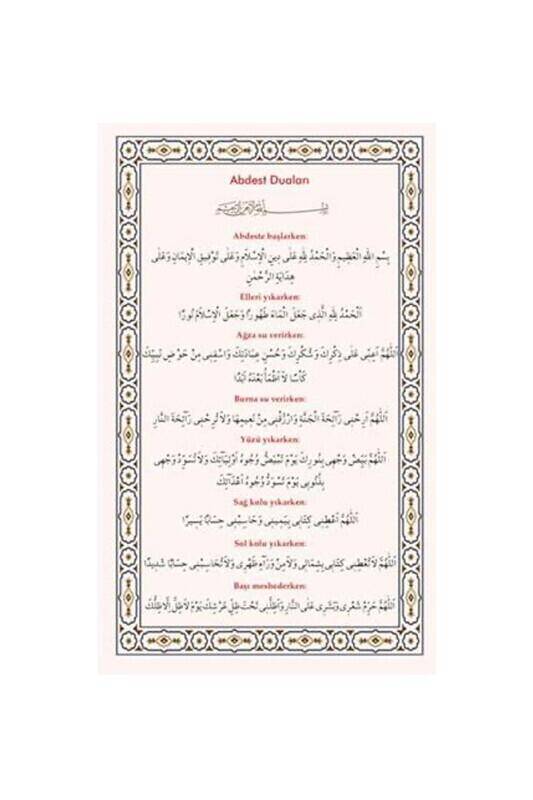 Abdest Duaları
بِسْمِ اللهِ الرَّحْمٰنِ الرَّحِيمِ
Abdeste başlarken:
بِسْمِ اللهِ الْعَظِيمِ وَالْحَمْدُ لِلّٰهِ عَلٰى دِينِ الْاِسْلَامِ وَعَلٰى تَوْفِيقِ الْاِيمَانِ وَعَلٰى
هِدَايَةِ الرَّحْمٰنِ
Elleri yıkarken:
اَلْحَمْدُ لِلّٰهِ الَّذِى جَعَلَ الْمَاءَ طَهُورًا وَجَعَلَ الْاِسْلَامَ نُورًا
Ağza su verirken:
اَللّٰهُمَّ اَعِنِّى عَلٰى ذِكْرِكَ وَشُكْرِكَ وَحُسْنِ عِبَادَتِكَ وَاسْقِنِى مِنْ حَوْضِ نَبِيِّكَ
كَأْسًا لَا اَظْمَأُ بَعْدَهُ اَبَدًا
Burna su verirken:
اَللّٰهُمَّ اَرِحْنِى رَائِحَةَ الْجَنَّةِ وَارْزُقْنِى مِنْ نَعِيمِهَا وَلَا تُرِحْنِى رَائِحَةَ النَّارِ
Yüzü yıkarken:
اَللّٰهُمَّ بَيِّضْ وَجْهِى بِنُورِكَ يَوْمَ تَبْيَضُّ وُجُوهُ اَوْلِيَائِكَ وَلَا تُسَوِّدْ وَجْهِى
بِذُنُوبِى يَوْمَ تَسْوَدُّ وُجُوهُ اَعْدَائِكَ
Sağ kolu yıkarken:
اَللّٰهُمَّ اَعْطِنِى كِتَابِى بِيَمِينِى وَحَاسِبْنِى حِسَابًا يَسِيرًا
Sol kolu yıkarken:
اَللّٰهُمَّ لَا تُعْطِنِى كِتَابِى بِشِمَالِى وَلَا مِنْ وَرَاءِ ظَهْرِى وَلَا تُحَاسِبْنِى حِسَابًا شَدِيدًا
Başı meshederken:
اَللّٰهُمَّ حَرِّمْ شَعْرِى وَبَشَرِى عَلَى النَّارِ وَاَظِلَّنِى تَحْتَ ظِلِّ عَرْشِكَ يَوْمَ لَا ظِلَّ اِلَّا ظِلُّكَ